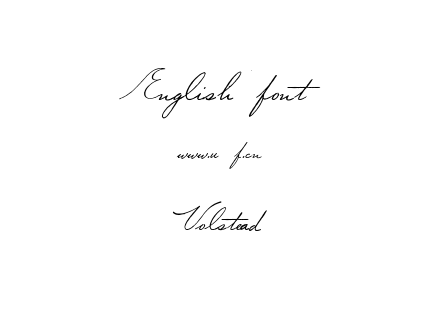 English font
www.u f.cn
Volstead